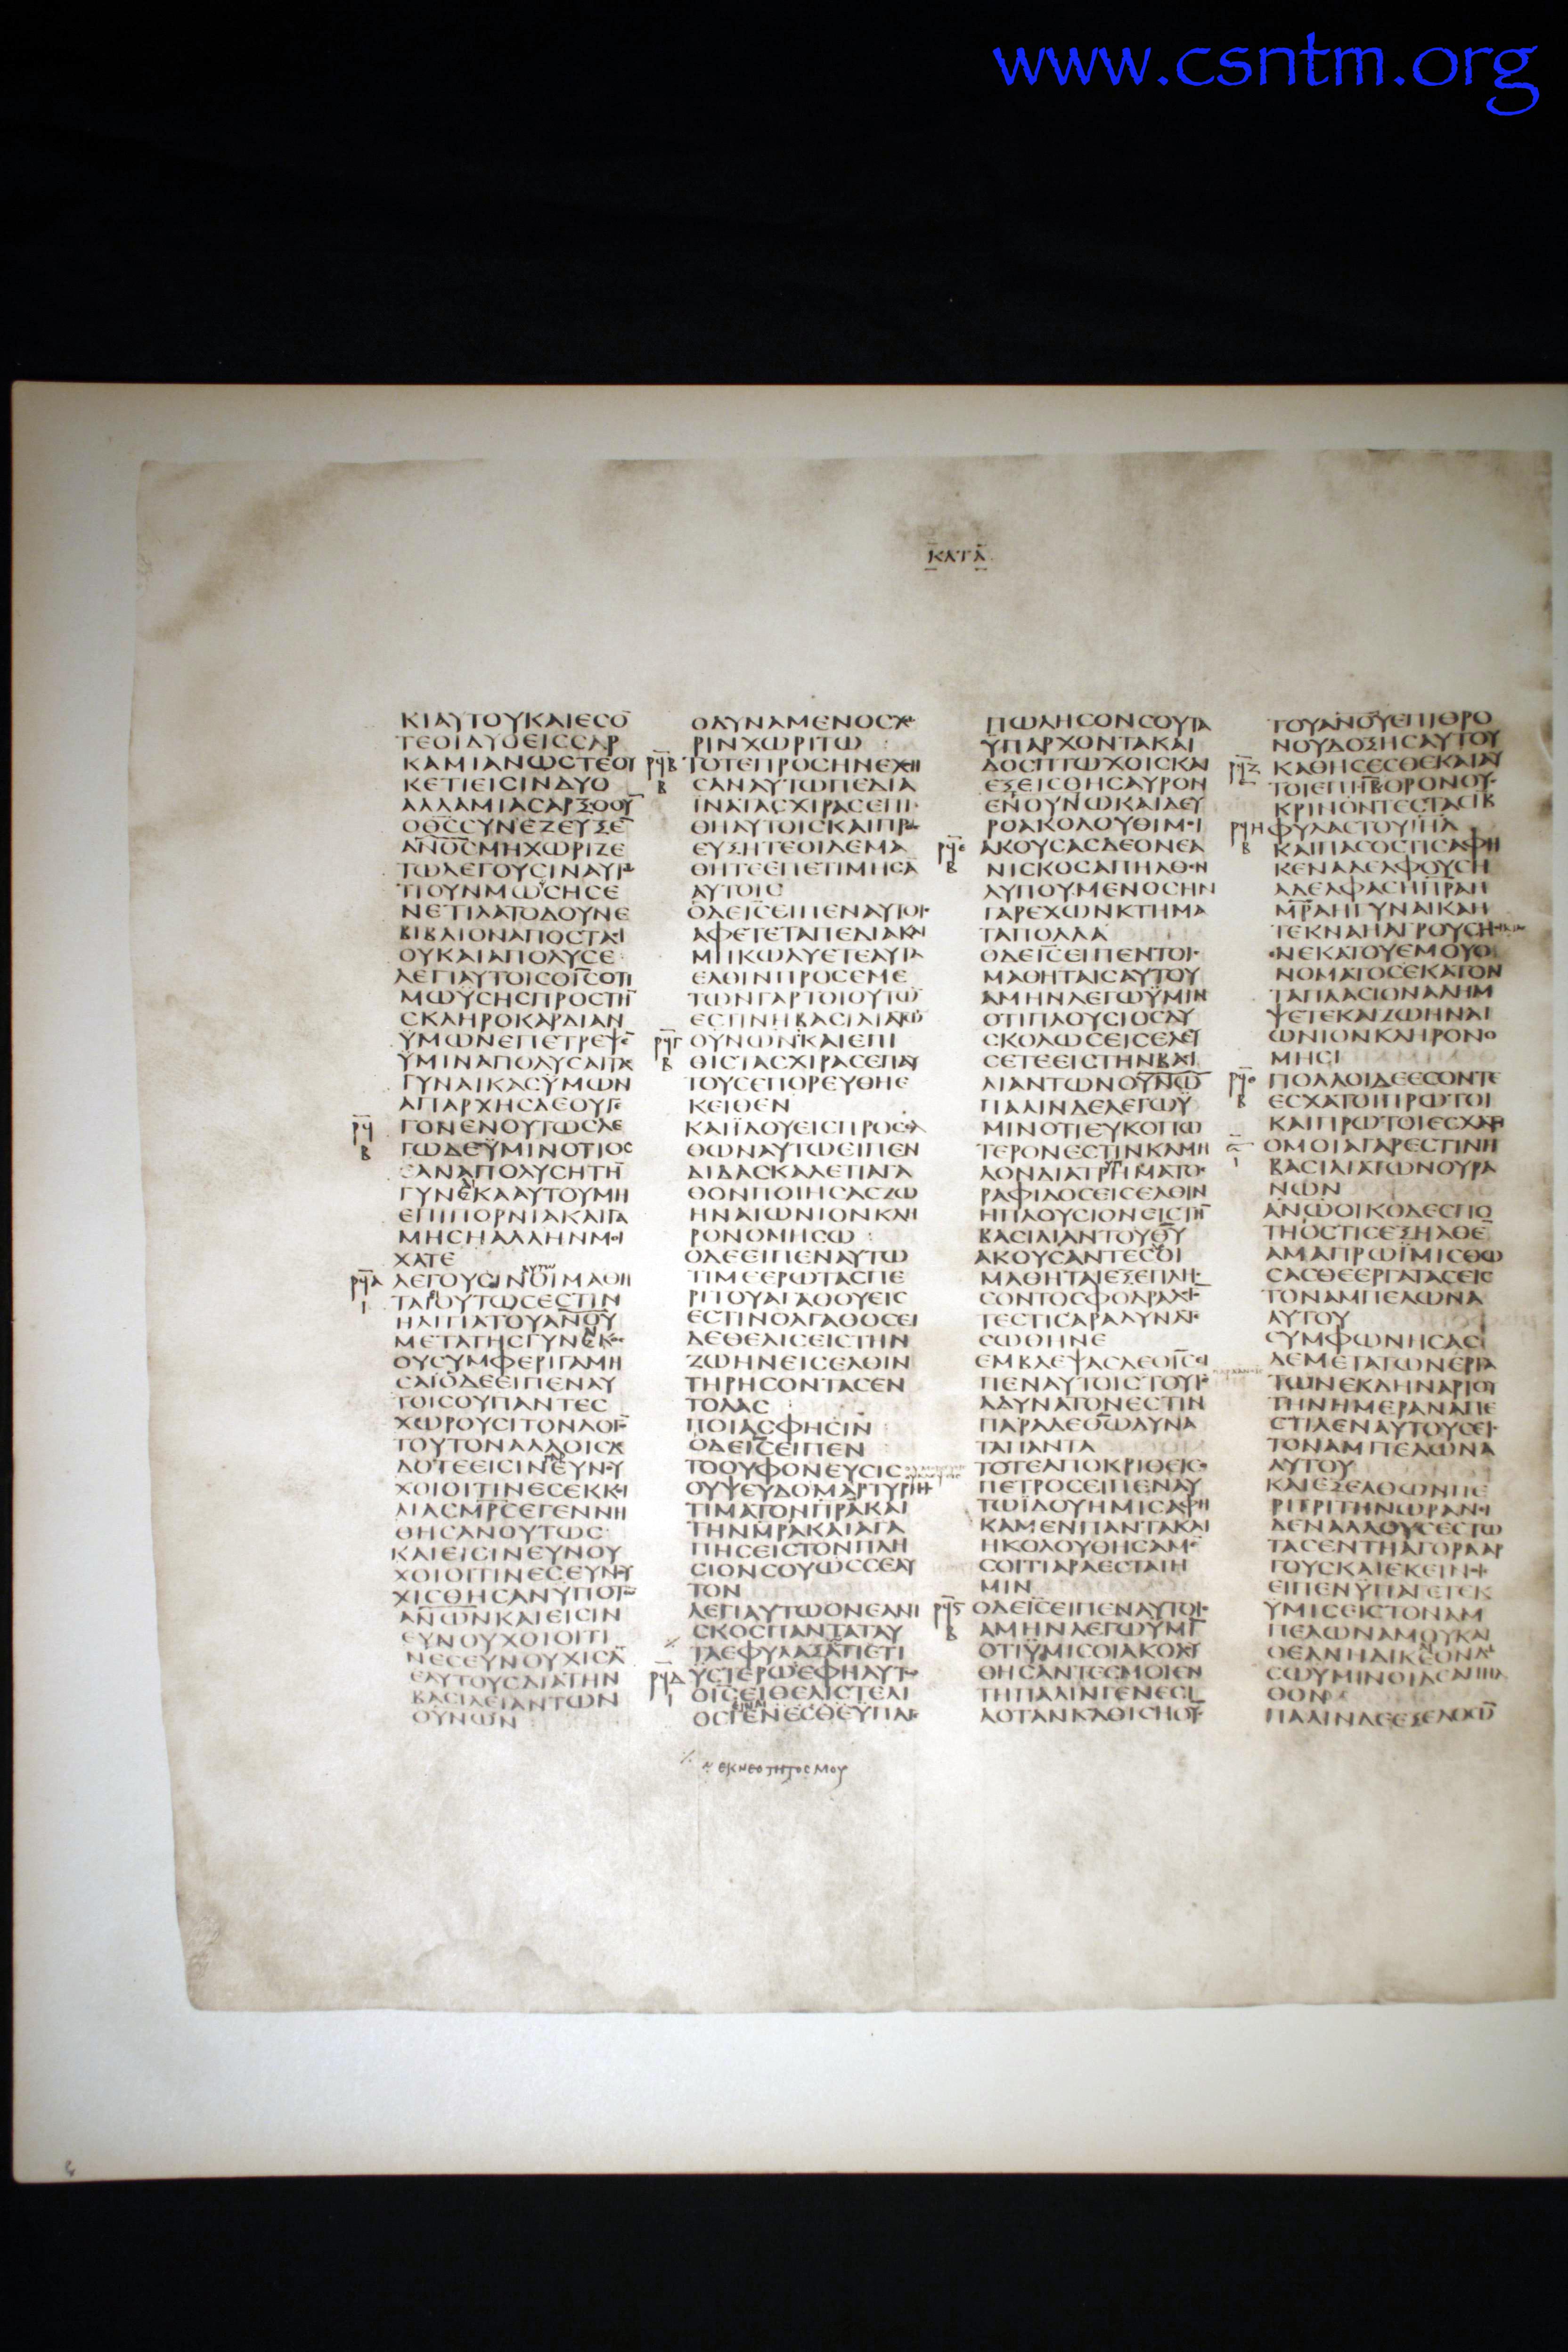 www.csntm.org
ΚΑΤΑ
ΚΙΑΥΤΟΥΚΑΙΕϹΟ̅
ΤΕΟΙΔΥΟΕΙϹϹΑΡ
ΚΑΜΙΑΝΩϹΤΕΟΥ
ΚΕΤΙΕΙϹΙΝΔΥΟ
ΑΛΛΑΜΙΑϹΑΡΞΟΟΥ̅
ΟΘ̅ϹϹΥΝΕΖΕΥΞΕ̅
ΑΝ̅ΟϹΜΗΧΩΡΙΖΕ
ΤΩΛΕΓΟΥϹΙΝΑΥΤΩ
ΤΙΟΥΝΜΩΫϹΗϹΕ
ΝΕΤΙΛΑΤΟΔΟΥΝΕ
ΒΙΒΛΙΟΝΑΠΟϹΤΑϹΙ
ΟΥΚΑΙΑΠΟΛΥϹΕ
ΛΕΓΙΑΥΤΟΙϹΟΙ̅ϹΟΤΙ
ΜΩΫϹΗϹΠΡΟϹΤΗ̅
ϹΚΛΗΡΟΚΑΡΔΙΑΝ
ΫΜΩΝΕΠΕΤΡΕΨΕ̅
ΫΜΙΝΑΠΟΛΥϹΑΙΤΑϹ
ΓΥΝΑΙΚΑϹΫΜΩΝ
ΑΠΑΡΧΗϹΔΕΟΥΓΕ
ρϟ
ΓΟΝΕΝΟΥΤΩϹΛΕ
Β
ΓΩΔΕΫΜΙΝΟΤΙΟϹ
ΑΝΑΠΟΛΥϹΗΤΗ̅
ΓΥΝΕΚΑΑΥΤΟΥΜΗ
ΕΠΙΠΟΡΝΙΑΚΑΙΓΑ
ΜΗϹΗΑΛΛΗΝΜΟΙ
ΧΑΤΕ
ρϟα
ΛΕΓΟΥϹΙΝΟΙΜΑΘΗ
Ι
ΤΑΙΟΥΤΩϹΕϹΤΙΝ
ΗΑΙΤΙΑΤΟΥΑΝ̅ΟΥ
ΜΕΤΑΤΗϹΓΥΝΕΚΟϹ
ΟΥϹΥΜΦΕΡΙΓΑΜΗ
ϹΑΙΟΔΕΕΙΠΕΝΑΥ
ΤΟΙϹΟΥΠΑΝΤΕϹ
ΧΩΡΟΥϹΙΤΟΝΛΟΓΟ̅
ΤΟΥΤΟΝΑΛΛΟΙϹΔΕ
ΔΟΤΕΕΙϹΙΝΕΥΝΟΥ
ΧΟΙΟΙΤΙΝΕϹΕΚΚΟΙ
ΛΙΑϹΜΡ̅ϹΕΓΕΝΝΗ
ΘΗϹΑΝΟΥΤΩϹ
ΚΑΙΕΙϹΙΝΕΥΝΟΥ
ΧΟΙΟΙΤΙΝΕϹΕΥΝΟΥ
ΧΙϹΘΗϹΑΝΥΠΟΤΩ̅
ΑΝ̅ΩΝΚΑΙΕΙϹΙΝ
ΕΥΝΟΥΧΟΙΟΙΤΙ
ΝΕϹΕΥΝΟΥΧΙϹΑ̅
ΕΑΥΤΟΥϹΔΙΑΤΗΝ
ΒΑϹΙΛΕΙΑΝΤΩΝ
ΟΥΝΩΝ
ΟΔΥΝΑΜΕΝΟϹΧΩ
ΡΙΝΧΩΡΙΤΩ
ρϟβ
ΤΟΤΕΠΡΟϹΗΝΕΧΘΗ
Β
ϹΑΝΑΥΤΩΠΕΔΙΑ
ΙΝΑΤΑϹΧΙΡΑϹΕΠΙ
ΘΗΑΥΤΟΙϹΚΑΙΠΡΟϹ
ΕΥΞΗΤΕΟΙΔΕΜΑ
ΘΗΤΕΕΠΕΤΙΜΗϹΑ̅
ΑΥΤΟΙϹ
ΟΔΕΙ̅ϹΕΙΠΕΝΑΥΤΟΙϹ
ΑΦΕΤΕΤΑΠΕΔΙΑΚΑΙ
ΜΗΚΩΛΥΕΤΕΑΥΤΑ
ΕΛΘΙΝΠΡΟϹΕΜΕ
ΤΩΝΓΑΡΤΟΙΟΥΤΩ̅
ΕϹΤΙΝΗΒΑϹΙΛΙΑΤΩ̅
ρϟγ
ΟΥΝΩΝΚΑΙΕΠΙ
Β
ΘΙϹΤΑϹΧΙΡΑϹΕΠΑΥ
ΤΟΥϹΕΠΟΡΕΥΘΗΕ
ΚΕΙΘΕΝ
ΚΑΙΪΔΟΥΕΙϹΠΡΟϹΕΛ
ΘΩΝΑΥΤΩΕΙΠΕΝ
ΔΙΔΑϹΚΑΛΕΤΙΑΓΑ
ΘΟΝΠΟΙΗϹΑϹΖΩ
ΗΝΑΙΩΝΙΟΝΚΛΗ
ΡΟΝΟΜΗϹΩ
ΟΔΕΕΙΠΕΝΑΥΤΩ
ΤΙΜΕΕΡΩΤΑϹΠΕ
ΡΙΤΟΥΑΓΑΘΟΥΕΙϹ
ΕϹΤΙΝΟΑΓΑΘΟϹΕΙ
ΔΕΘΕΛΙϹΕΙϹΤΗΝ
ΖΩΗΝΕΙϹΕΛΘΙΝ
ΤΗΡΗϹΟΝΤΑϹΕΝ
ΤΟΛΑϹ
ΠΟΙΑϹΦΗϹΙΝ
ΟΔΕΙ̅ϹΕΙΠΕΝ
ΤΟΟΥΦΟΝΕΥϹΙϹ
ΟΥΨΕΥΔΟΜΑΡΤΥΡΗϹΙϹ
ΤΙΜΑΤΟΝΠ̅ΡΑΚΑΙ
ΤΗΝΜ̅ΡΑΚΑΙΑΓΑ
ΠΗϹΕΙϹΤΟΝΠΛΗ
ϹΙΟΝϹΟΥΩϹϹΕΑΥ
ΤΟΝ
ΛΕΓΙΑΥΤΩΟΝΕΑΝΙ
ϹΚΟϹΠΑΝΤΑΤΑΥ
ΤΑΕΦΥΛΑΞΑΤΙΕΤΙ
ρϟδ
ΫϹΤΕΡΩΕΦΗΑΥΤΩ
Ι
ΟΙ̅ϹΕΙΘΕΛΙϹΤΕΛΙ
ΟϹΓΕΝΕϹΘΕΥΠΑΓΕ
ΕΚΝΕΟΤΗΤΟϹΜΟΥ
ΠΩΛΗϹΟΝϹΟΥΤΑ
ΫΠΑΡΧΟΝΤΑΚΑΙ
ΔΟϹΠΤΩΧΟΙϹΚΑΙ
ΕΞΕΙϹΘΗϹΑΥΡΟΝ
ΕΝΟΥΝΩΚΑΙΔΕΥ
ΡΟΑΚΟΛΟΥΘΙΜΟΙ
ρϟε
ΑΚΟΥϹΑϹΔΕΟΝΕΑ
Β
ΝΙϹΚΟϹΑΠΗΛΘΕΝ
ΛΥΠΟΥΜΕΝΟϹΗΝ
ΓΑΡΕΧΩΝΚΤΗΜΑ
ΤΑΠΟΛΛΑ
ΟΔΕΙ̅ϹΕΙΠΕΝΤΟΙϹ
ΜΑΘΗΤΑΙϹΑΥΤΟΥ
ΑΜΗΝΛΕΓΩΫΜΙΝ
ΟΤΙΠΛΟΥϹΙΟϹΔΥ
ϹΚΟΛΩϹΕΙϹΕΛΕΥ
ϹΕΤΕΕΙϹΤΗΝΒΑϹΙ
ΛΙΑΝΤΩΝΟΥΝΩ̅
ΠΑΛΙΝΔΕΛΕΓΩΫ
ΜΙΝΟΤΙΕΥΚΟΠΩ
ΤΕΡΟΝΕϹΤΙΝΚΑΜΗ
ΛΟΝΔΙΑΤΡΗΜΑΤΟϹ
ΡΑΦΙΔΟϹΕΙϹΕΛΘΙΝ
ΗΠΛΟΥϹΙΟΝΕΙϹΤΗ̅
ΒΑϹΙΛΙΑΝΤΟΥΘ̅Υ
ΑΚΟΥϹΑΝΤΕϹΟΙ
ΜΑΘΗΤΑΙΕΞΕΠΛΗϹ
ϹΟΝΤΟϹΦΟΔΡΑΛΕΓΟ̅
ΤΕϹΤΙϹΑΡΑΔΥΝΑΤΕ
ϹΩΘΗΝΕ
ΕΜΒΛΕΨΑϹΔΕΟΙ̅ϹΕΙ
ΠΕΝΑΥΤΟΙϹΤΟΥΤΟ
ΑΔΥΝΑΤΟΝΕϹΤΙΝ
ΠΑΡΑΔΕΘ̅ΩΔΥΝΑ
ΤΑΠΑΝΤΑ
ΤΟΤΕΑΠΟΚΡΙΘΕΙϹΟ
ΠΕΤΡΟϹΕΙΠΕΝΑΥ
ΤΩΪΔΟΥΗΜΙϹΑΦΗ
ΚΑΜΕΝΠΑΝΤΑΚΑΙ
ΗΚΟΛΟΥΘΗϹΑΜΕ̅
ϹΟΙΤΙΑΡΑΕϹΤΑΙΗ
ΜΙΝ
ρϟϛ
ΟΔΕΙ̅ϹΕΙΠΕΝΑΥΤΟΙϹ
Β
ΑΜΗΝΛΕΓΩΥΜΙ̅
ΟΤΙΫΜΙϹΟΙΑΚΟΛΟΥ
ΘΗϹΑΝΤΕϹΜΟΙΕΝ
ΤΗΠΑΛΙΝΓΕΝΕϹΙ
ΑΟΤΑΝΚΑΘΙϹΗΟΥ̅
ΤΟΥΑΝ̅ΟΥΕΠΙΘΡΟ
ΝΟΥΔΟΞΗϹΑΥΤΟΥ
ρϟζ
ΚΑΘΗϹΕϹΘΕΚΑΙΑΥ
ΤΟΙΕΠΗΙΒΘΡΟΝΟΥϹ
ΚΡΙΝΟΝΤΕϹΤΑϹΙΒ
ρϟη
ΦΥΛΑϹΤΟΥΙ̅Η̅Λ
Β
ΚΑΙΠΑϹΟϹΤΙϹΑΦΗ
ΚΕΝΑΔΕΛΦΟΥϹΗ
ΑΔΕΛΦΑϹΗΠΡΑΗ
Μ̅ΡΑΗΓΥΝΑΙΚΑΗ
ΤΕΚΝΑΗΑΓΡΟΥϹΗ
ΝΕΚΑΤΟΥΕΜΟΥΟ
ΝΟΜΑΤΟϹΕΚΑΤΟΝ
ΤΑΠΛΑϹΙΟΝΑΛΗΜ
ΨΕΤΕΚΑΙΖΩΗΝΑΙ
ΩΝΙΟΝΚΛΗΡΟΝΟ
ΜΗϹΙ
ΠΟΛΛΟΙΔΕΕϹΟΝΤΕ
Β
ΕϹΧΑΤΟΙΠΡΩΤΟΙ
ΚΑΙΠΡΩΤΟΙΕϹΧΑΤΟΙ
ΟΜΟΙΑΓΑΡΕϹΤΙΝΗ
Ι
ΒΑϹΙΛΙΑΤΩΝΟΥΡΑ
ΝΩΝ
ΑΝ̅ΩΟΙΚΟΔΕϹΠΟ
ΤΗΟϹΤΙϹΕΞΗΛΘΕ̅
ΑΜΑΠΡΩΪΜΙϹΘΩ
ϹΑϹΘΕΕΡΓΑΤΑϹΕΙϹ
ΤΟΝΑΜΠΕΛΩΝΑ
ΑΥΤΟΥ
ϹΥΜΦΩΝΗϹΑϹ
ΔΕΜΕΤΑΤΩΝΕΡΓΑ
ΤΩΝΕΚΔΗΝΑΡΙΟΥ
ΤΗΝΗΜΕΡΑΝΑΠΕ
ϹΤΙΛΕΝΑΥΤΟΥϹΕΙϹ
ΤΟΝΑΜΠΕΛΩΝΑ
ΑΥΤΟΥ
ΚΑΙΕΞΕΛΘΩΝΠΕ
ΡΙΤΡΙΤΗΝΩΡΑΝΕΙ
ΔΕΝΑΛΛΟΥϹΕϹΤΩ
ΤΑϹΕΝΤΗΑΓΟΡΑΑΡ
ΓΟΥϹΚΑΙΕΚΕΙΝΟΙϹ
ΕΙΠΕΝΫΠΑΓΕΤΕΚ
ΥΜΙϹΕΙϹΤΟΝΑΜ
ΠΕΛΩΝΑΜΟΥΚΑΙ
ΟΕΑΝΗΔΙΚΕΟΝΔΩ
ϹΩΥΜΙΝΟΙΔΕΑΠΗΛ
ΘΟΝ
ΠΑΛΙΝΔΕΕΞΕΛΘΩ̅